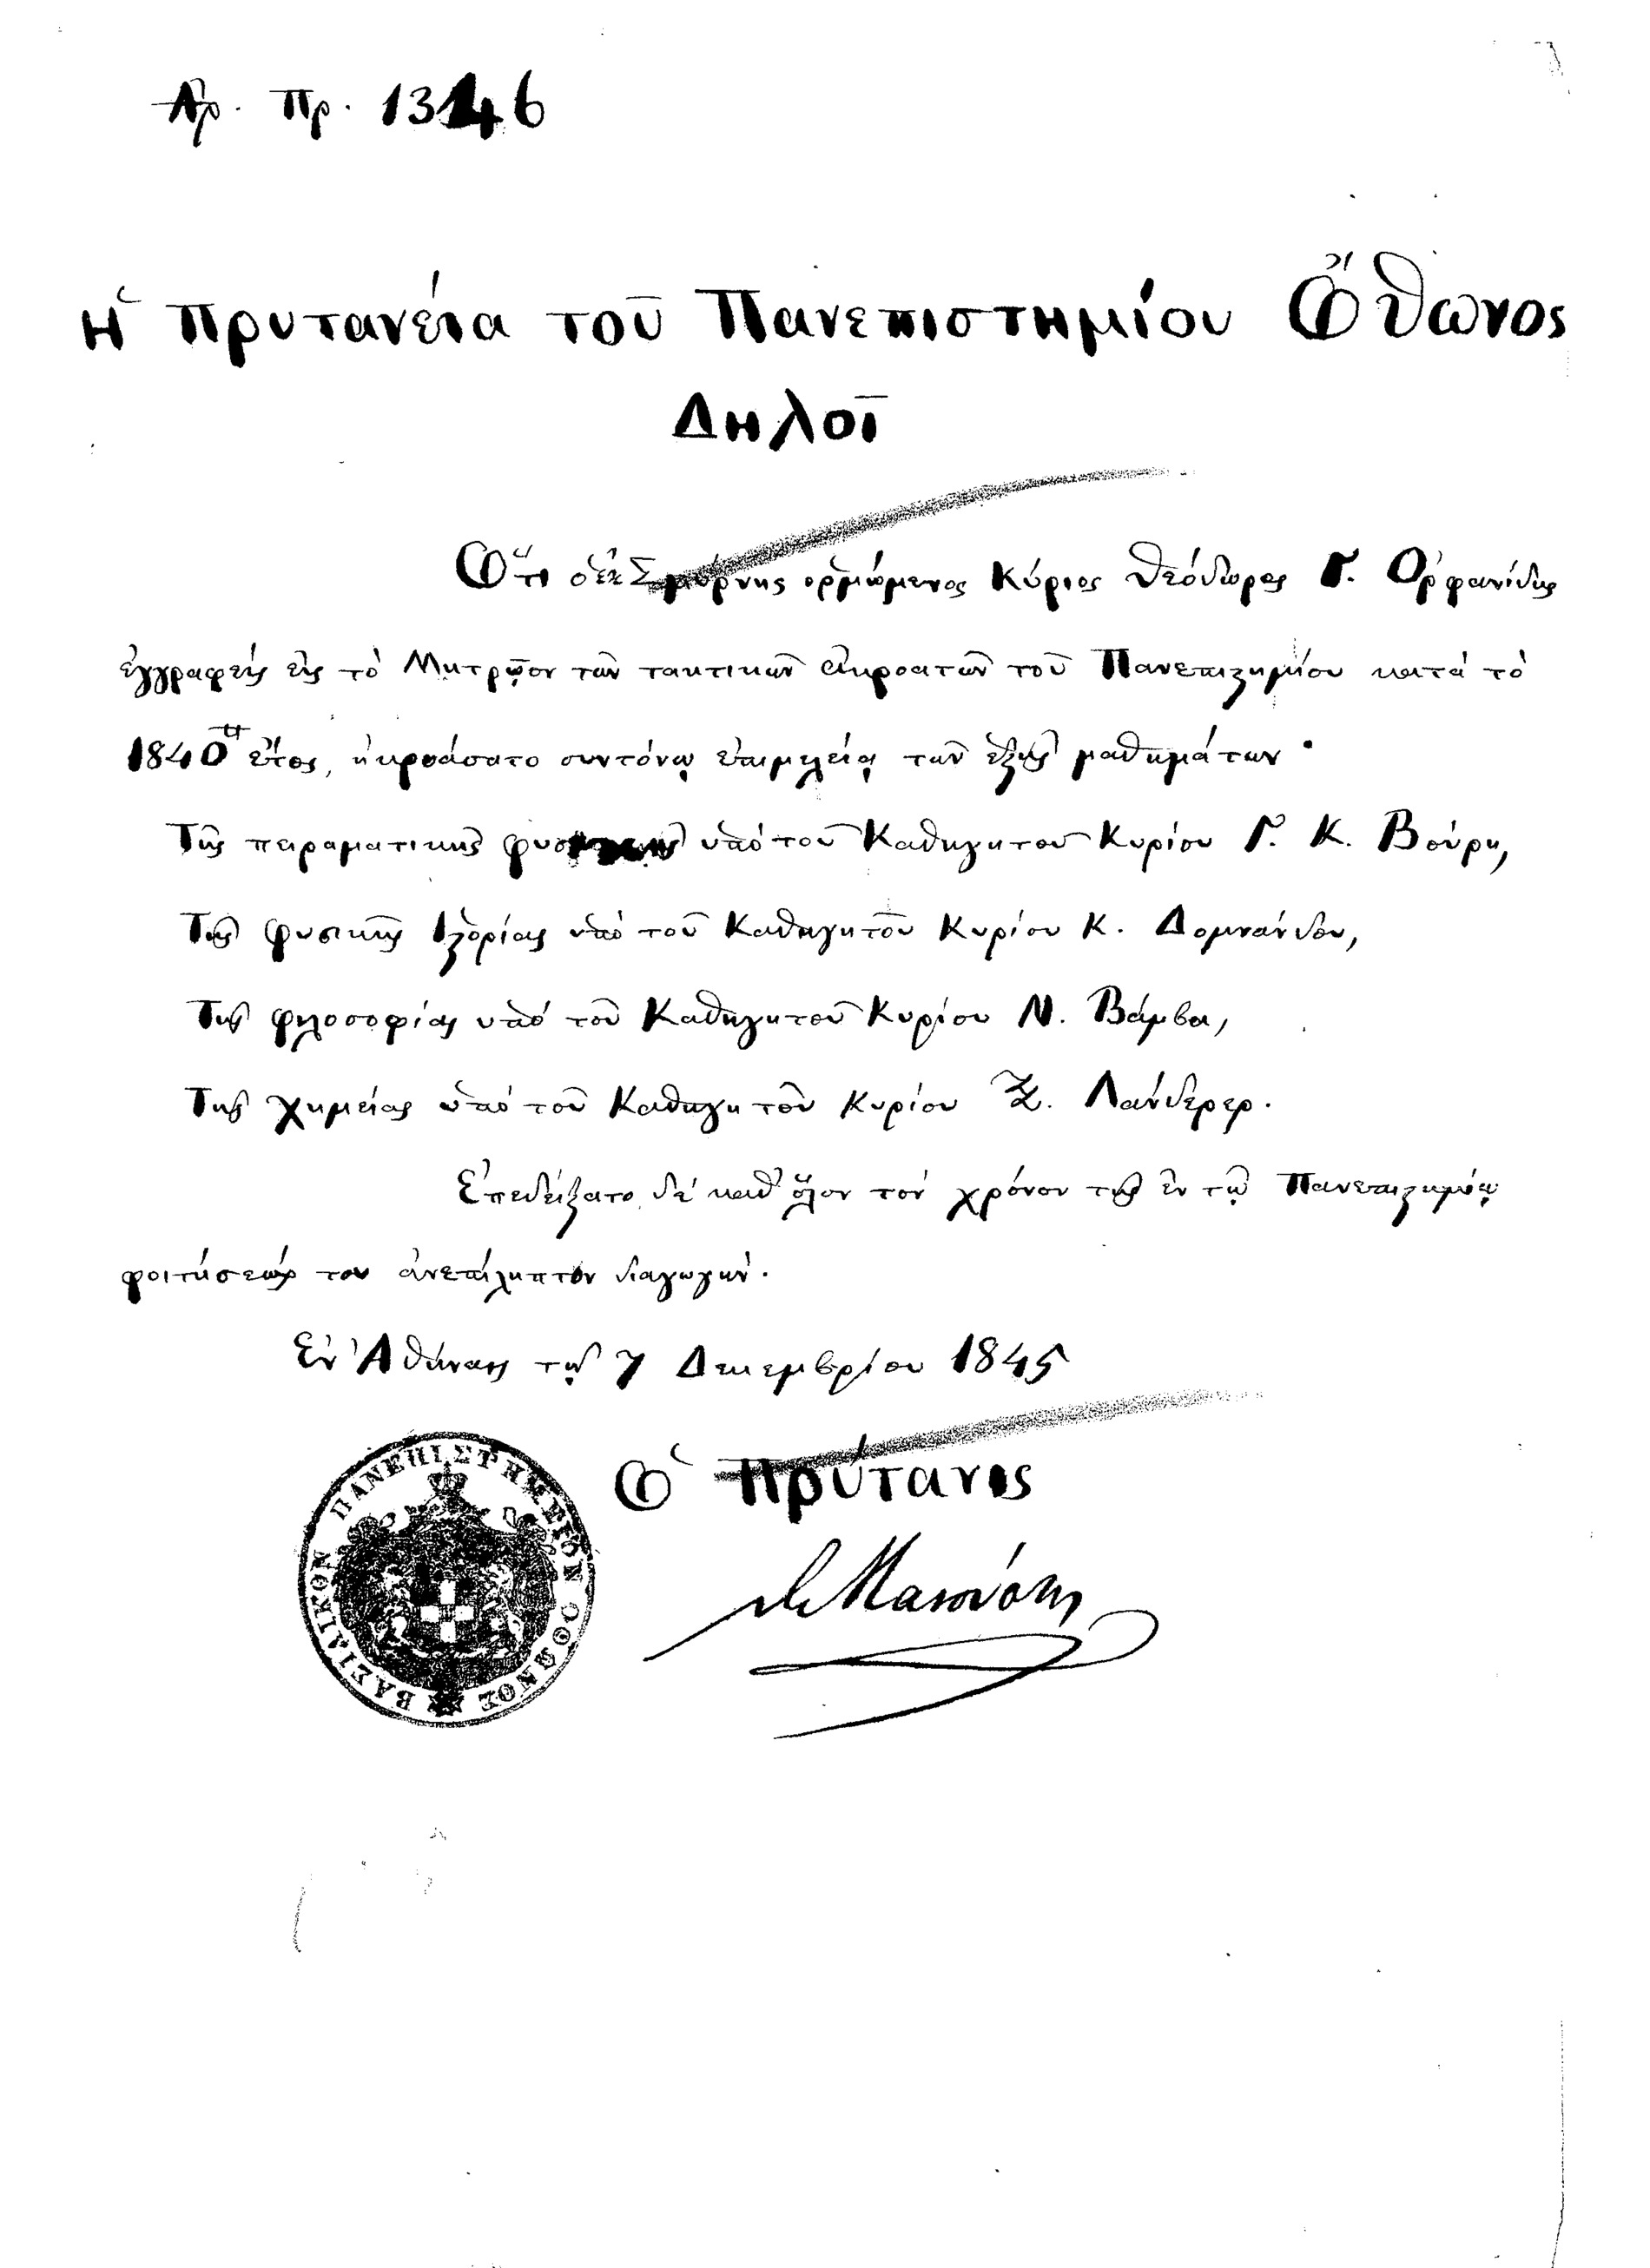 Ἀρ. Πρ. 1346
Ἡ Πρυτανεία τοῦ Πανεπιστημίου Ὄθωνος
Δηλοῖ
Ὅτι ὁ ἐκ Σμύρνης ὁρμώμενος Κύριος Θεόδωρος Γ. Ὀρφανίδης
ἐγγραφεὶς εἰς τὸ Μητρῷον τῶν τακτικῶν ἀκροατῶν τοῦ Πανεπιστημίου κατὰ τὸ
1840 ἔτος, ἠκροάσατο συντόνῳ ἐπιμελείᾳ τῶν ἑξῆς μαθημάτων·
Τῆς πειραματικῆς φυσικῆς ὑπὸ τοῦ Καθηγητοῦ Κυρίου Γ. Κ. Βούρη,
Τῆς φυσικῆς Ἱστορίας ὑπὸ τοῦ Καθηγητοῦ Κυρίου Κ. Δομνάνδου,
Τῆς φιλοσοφίας ὑπὸ τοῦ Καθηγητοῦ Κυρίου Ν. Βάμβα,
Τῆς χημείας ὑπὸ τοῦ Καθηγητοῦ Κυρίου Ξ. Λάνδερερ.
Ἐπεδείξατο δὲ καθ' ὅλον τὸν χρόνον τῆς ἐν τῷ Πανεπιστημίῳ
φοιτήσεώς του ἀνεπίληπτον διαγωγήν.
Ἐν Ἀθήναις τῇ 7 Δεκεμβρίου 1845
Ὁ Πρύτανις
ΒΑΣΙΛΙΚΟΝ ΠΑΝΕΠΙΣΤΗΜΕΙΟΝ ΟΘΩΝΟΣ